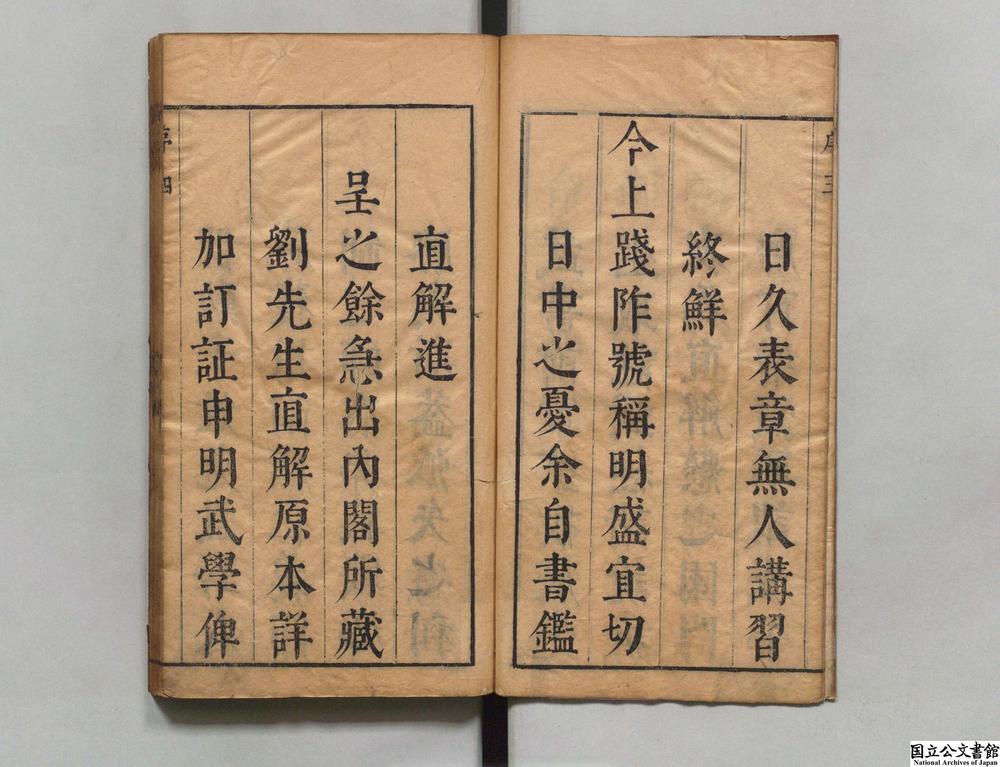 序三
日久表章無人講習
終鮮
今上踐阼號稱明盛宜切
日中之憂余自書鑑
直解進
呈之餘急出內閣所藏
劉先生直解原本詳
加訂証申明武學俾
序四
国立公文書館
National Archives of Japan